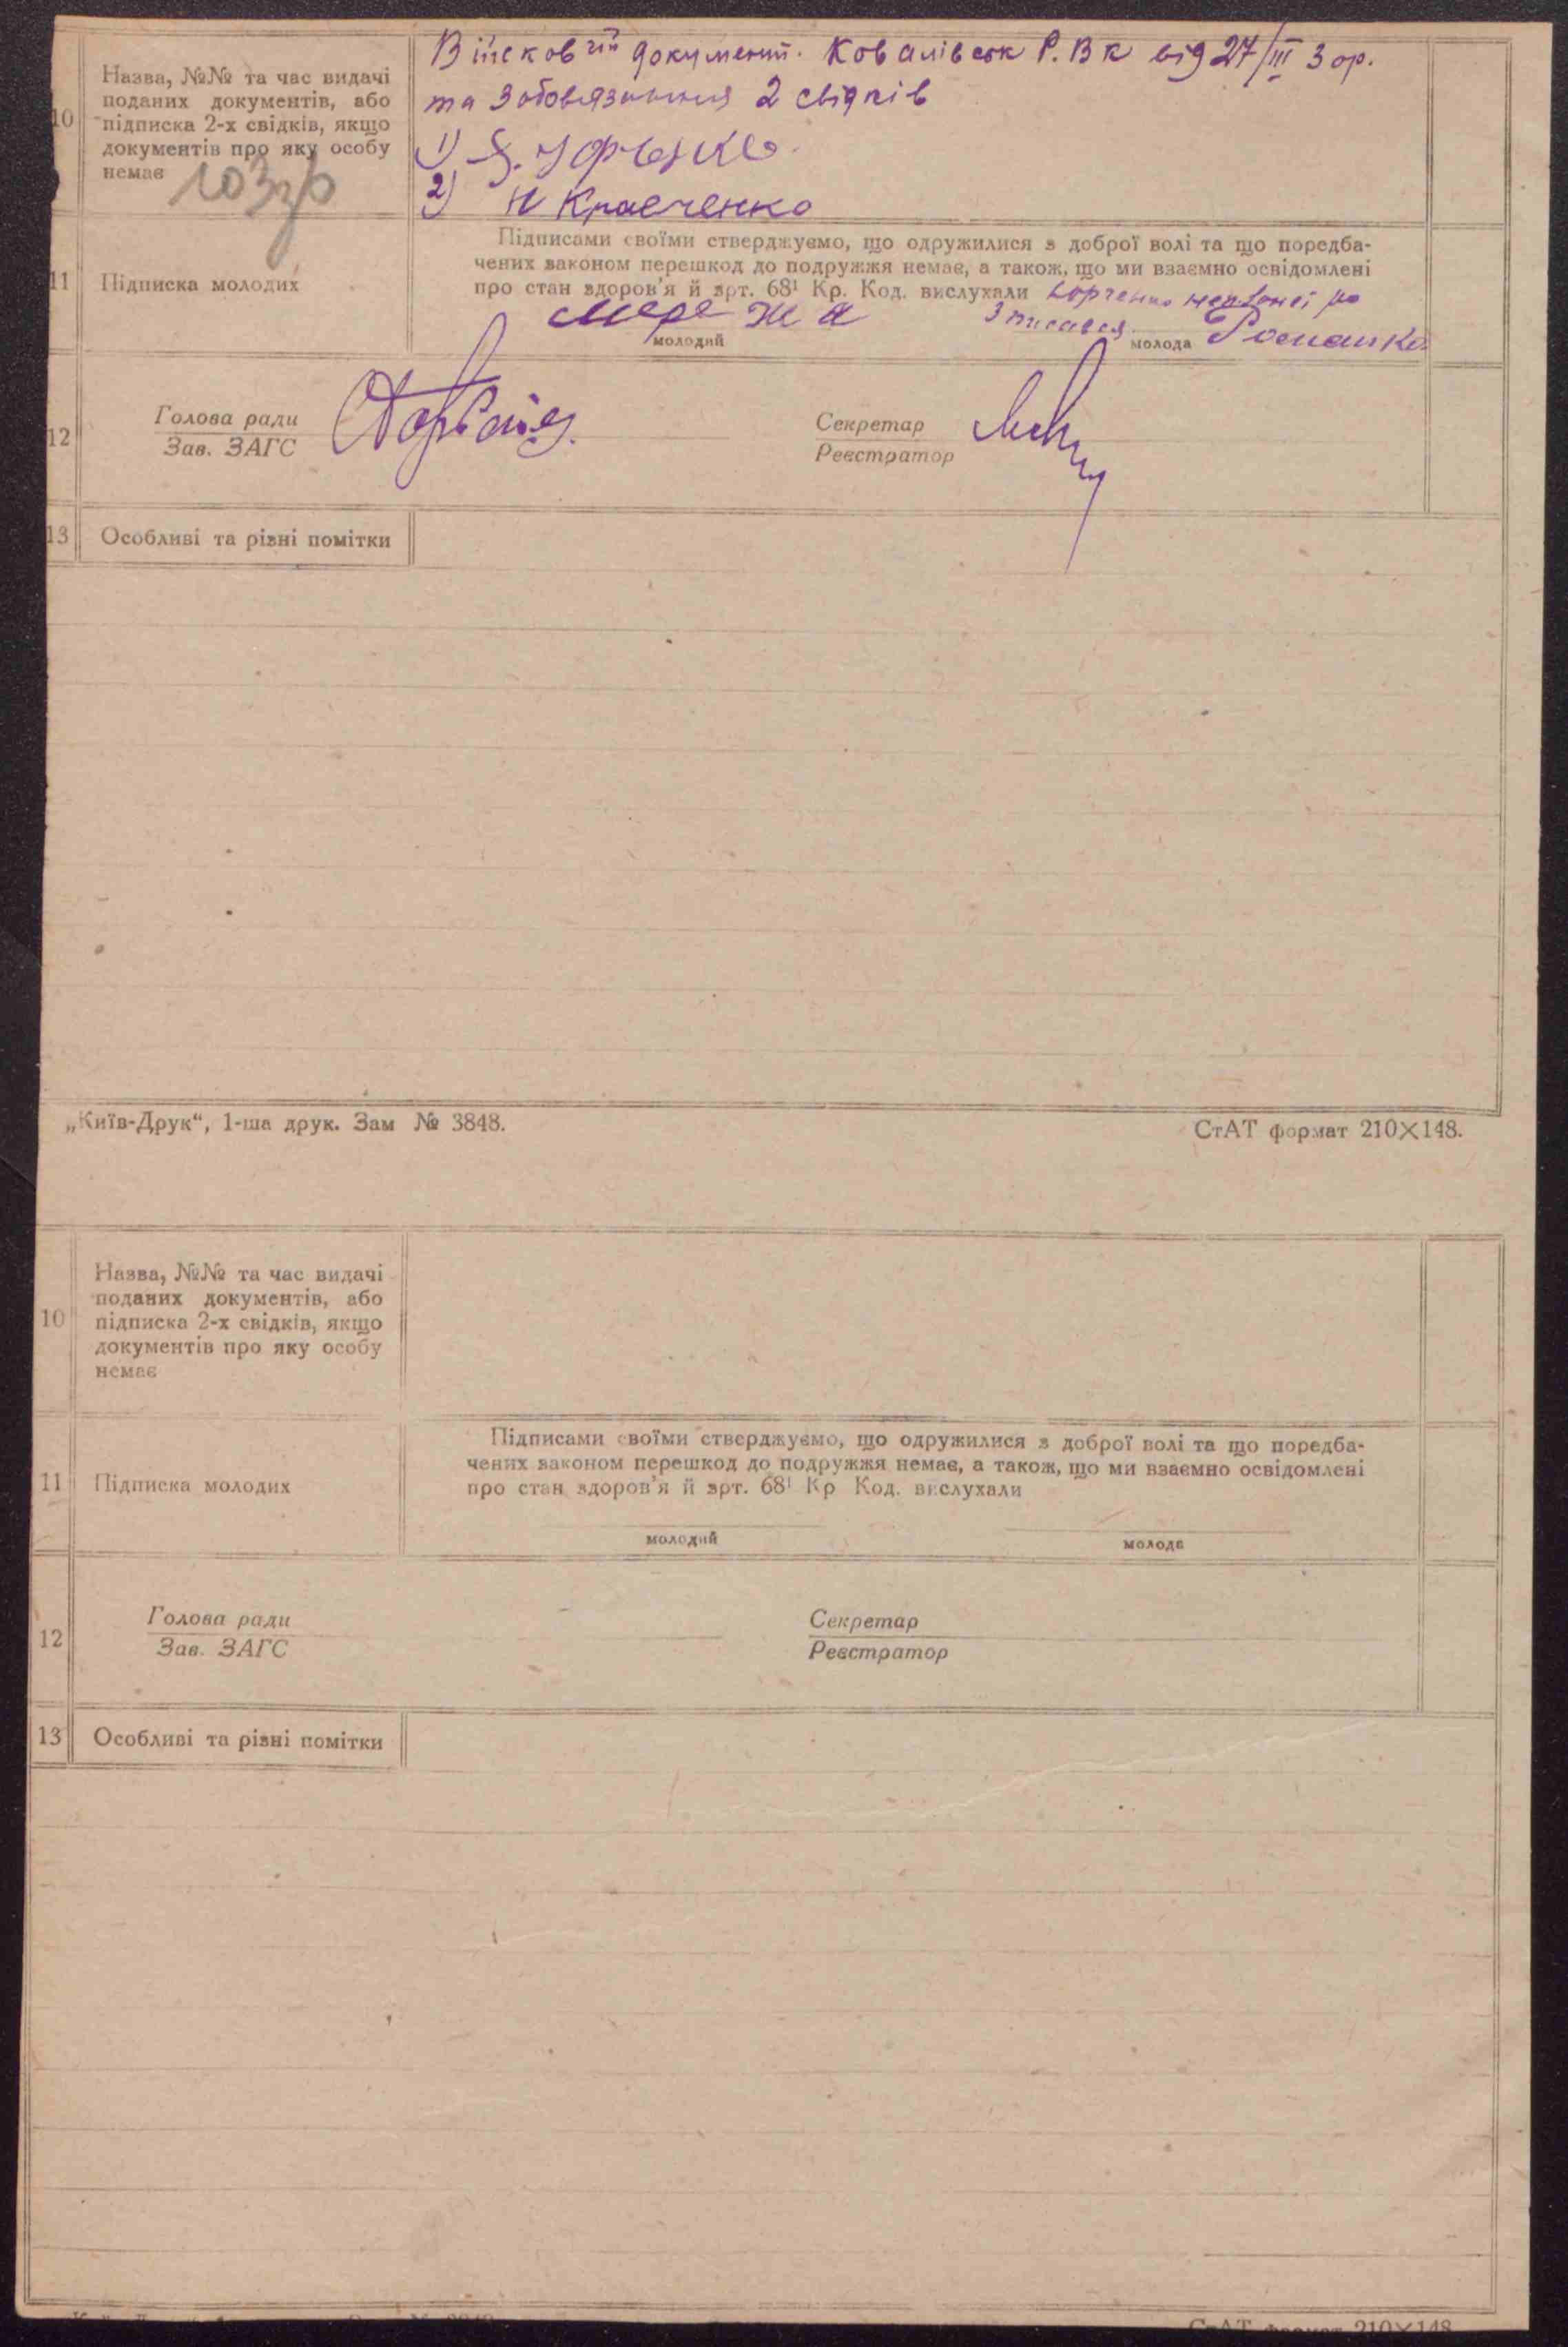 10
Назва, №№ та час видачі
поданих документів, або
підписка 2-х свідків, якщо
документів про яку особу
немає
Військовий документ. Ковалівськ Р.В к від 27/III 3 ор.
та зобовязання 2 свідків
1)
2) Н Кравченко
11
Підписка молодих
Підписами своїми стверджуємо, що одружилися з доброї волі та що передба-
чених законом перешкод до подружжя немає, а також, що ми взаємно освідомлені
про стан здоров'я й арт. 68¹ Кр. Код. вислухали
Мережа
молодий
молода Романко
12
Голова ради
Зав. ЗАГС
Секретар
Реєстратор
13
Особливі та різні помітки
„Київ-Друк“, 1-ша друк. Зам № 3848.
СтАТ формат 210×148.
10
Назва, №№ та час видачі
поданих документів, або
підписка 2-х свідків, якщо
документів про яку особу
немає
11
Підписка молодих
Підписами своїми стверджуємо, що одружилися з доброї волі та що передба-
чених законом перешкод до подружжя немає, а також, що ми взаємно освідомлені
про стан здоров'я й арт. 68¹ Кр Код. вислухали
молодий
молода
12
Голова ради
Зав. ЗАГС
Секретар
Реєстратор
13
Особливі та різні помітки
СтАТ формат 210×148